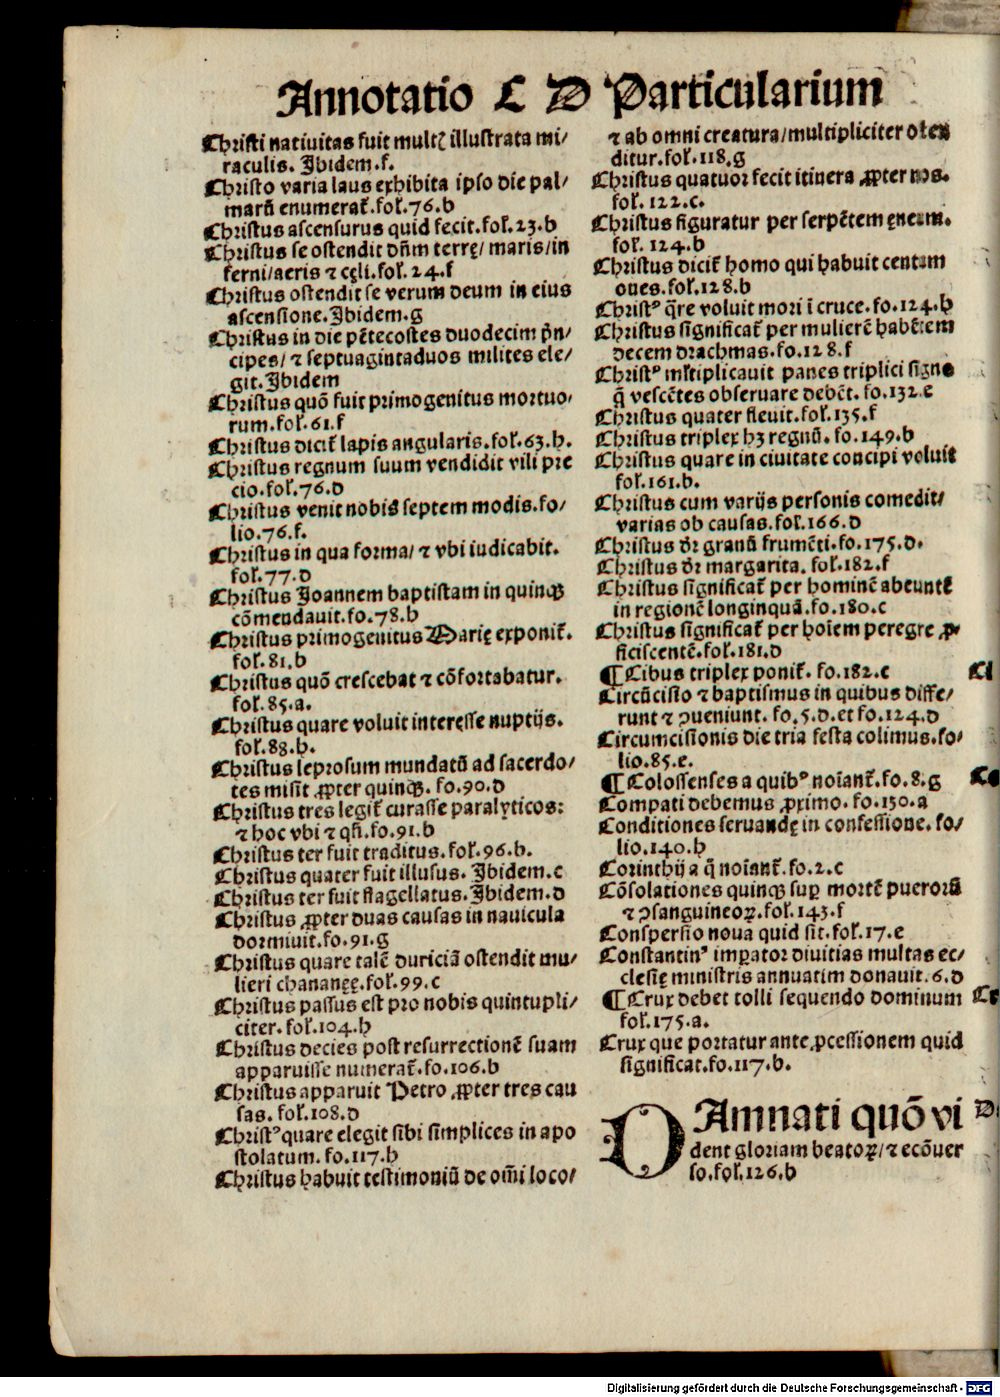 Annotatio C D Particularium
Christi nativitas fuit multꝭ illustrata mi/
raculis. Ibidem.f.
Christo varia laus exhibita ipso die pal/
marū enumerat̄.fol̄.76.b
Christus ascensurus quid fecit.fol̄.23.b
Christus se ostendit dn̄m terrę/ maris/in
ferni/aeris ⁊ cęli.fol̄. 24.f
Christus ostendit se verum deum in eius
ascensione.Ibidem.g
Christus in die pētecostes duodecim pn̄/
cipes/ ⁊ septuagintaduos milites ele/
git. Ibidem
Christus quō fuit primogenitus mortuo/
rum.fol̄.61.f
Christus dicit̄ lapis angularis.fol̄.63.h.
Christus regnum suum vendidit vili pre
cio.fol̄.76.d
Christus venit nobis septem modis.fo/
lio.76.f.
Christus in qua forma/ ⁊ vbi iudicabit.
fol̄.77.d
Christus Joannem baptistam in quinqꝫ
cōmendauit.fo.78.b
Christus primogenitus Marię exponit̄.
fol̄.81.b
Christus quō crescebat ⁊ cōfortabatur.
fol̄.85.a.
Christus quare voluit interęsse nuptijs.
fol̄.88.h.
Christus leprosum mundatū ad sacerdo/
tes misit ꝓpter quinqꝫ. fo.90.d
Christus tres legit̄ curasse paralyticos:
⁊ hoc vbi ⁊ qn̄.fo.91.b
Christus ter fuit traditus.fol̄.96.b.
Christus quater fuit illusus. Ibidem.c
Christus ter fuit flagellatus.Ibidem.d
Christus ꝓpter duas causas in nauicula
dormiuit.fo.91.g
Christus quare talē duriciā ostendit mu/
lieri chananęę.fol̄.99.c
Christus passus est pro nobis quintupli/
citer. fol̄.104.h
Christus decies post resurrectionē suam
apparuisse numerat̄.fo.106.b
Christus apparuit Petro ꝓpter tres cau
sas. fol̄.108.d
Christꝰ quare elegit sibi simplices in apo
stolatum. fo.117.h
Christus habuit testimoniū de om̄i loco/
⁊ ab omni creatura/multipliciter osten
ditur.fol̄.118.g
Christus quatuor fecit itinera ꝓpter nos.
fol̄. 122.c.
Christus figuratur per serpētem ęneum.
fol̄. 124.b
Christus dicit̄ homo qui habuit centum
oues.fol̄.128.b
Christꝰ q̄re voluit mori ī cruce.fo.124.h
Christus significat̄ per mulierē habētem
decem drachmas.fo.128.f
Christꝰ ml̄tiplicauit panes triplici signo
q̄ vescētes obseruare debēt. fo.132.e
Christus quater fleuit.fol̄.135.f
Christus triplex hꝫ regnū. fo.149.b
Christus quare in ciuitate concipi voluit
fol̄.161.b.
Christus cum varijs personis comedit/
varias ob causas.fol̄.166.d
Christus dr̄ granū frumēti.fo.175.d.
Christus dr̄ margarita. fol̄.182.f
Christus significat̄ per hominē abeuntē
in regionē longinquā.fo.180.c
Christus significat̄ per hoīem peregre ꝓ
ficiscentē.fol̄.181.d
¶ Cibus triplex ponit̄. fo.182.c
Circūcisio ⁊ baptismus in quibus diffe/
runt ⁊ ꝯueniunt. fo.5.d.et fo.124.d
Circumcisionis die tria festa colimus.fo/
lio.85.e.
¶ Colossenses a quibꝰ noīant̄.fo.8.g
Compati debemus ꝓximo. fo.150.a
Conditiones seruandę in confessione. fo/
lio.140.h
Corinthij a q̄ noīant̄.fo.2.c
Cōsolationes quinqꝫ suꝑ mortē puerorū
⁊ ꝯsanguineoꝝ.fol̄.143.f
Conspersio noua quid sit.fol̄.17.e
Constantinꝰ imꝑator diuitias multas ec/
clesię ministris annuatim donauit.6.d
¶ Crux debet tolli sequendo dominum
fol̄.175.a.
Crux que portatur ante ꝓcessionem quid
significat.fo.117.b.
DAmnati quō vi
dent gloriam beatoꝝ/ ⁊ ecōuer
so.fol̄.126.b
Cl
Co
Cr
D
Digitalisierung gefördert durch die Deutsche Forschungsgemeinschaft - DFG